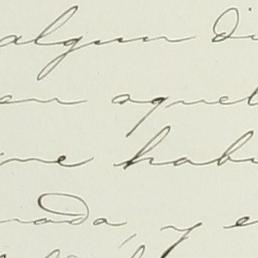 algun di
en aquel
me habi
nada, y e